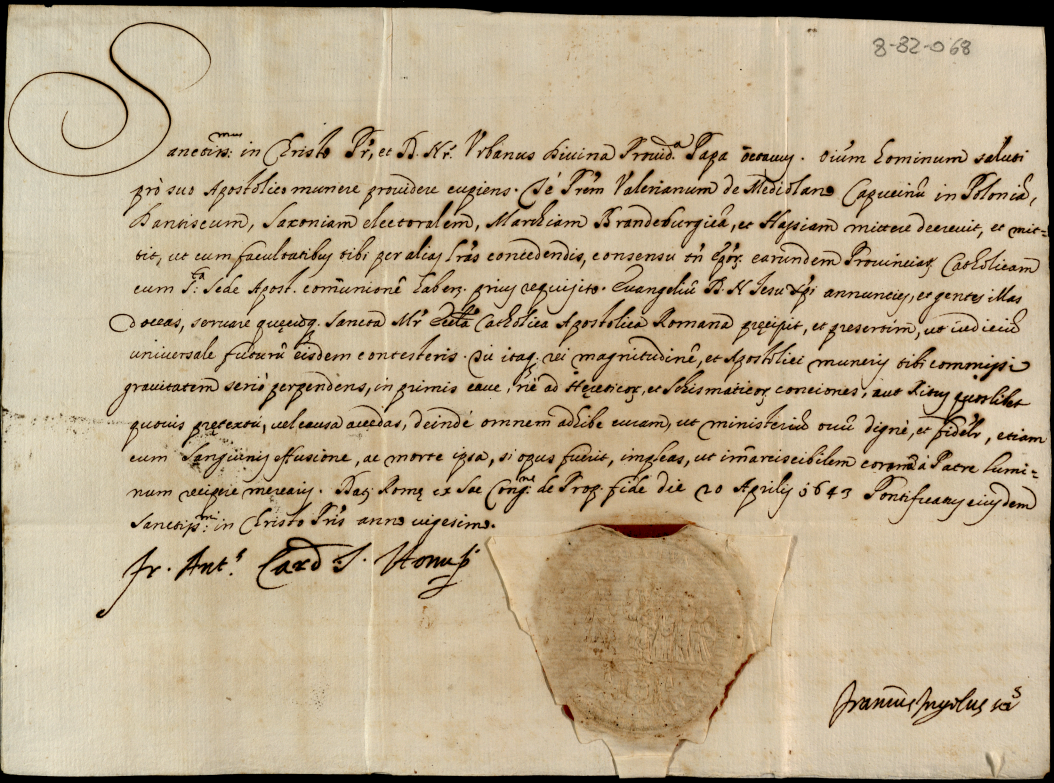 8-82-068
Sanctiss:mus in Christo Pr̃, et D. Nr̃. Vrbanus diuina Prouid.a Papa octauus. oĩum hominum saluti
prò suo Apostolico munere prouidere cupiens. Té Frẽm Valerianum de Mediolano Capucinũ in Poloniã,
Dantiscum, Saxoniam electoralem, Marchiam Brandeburgicã, et Hassiam mittere decreuit, et mit=
tit, ut cum facultatibus tibi per alias lr̃as concedendis, consensu tñ Epõr. earundem Prouinciar. Catholicam
cum S.ta Sede Apost. comũnionẽ haben. prius requisito. Euangeliũ D. N Iesu Xp̃i annuncies, et gentes illas
doceas, seruare quęcũq. sancta Mr̃ Eccl̃a Catholica Apostolica Romana pręcipit, et presertim, ut iudiciũ
uniuersale futurũ eisdem contesteris. Tu itaq. rei magnitudinẽ, et Apostolici muneris tibi commissi
grauitatem seriò perpendens, in primis caue, ne ad Hęreticor, et Schismaticor conciones, aut Ritus quoslibet
quouis prętextu, uel causa accedas, deindè omnem adhibe curam, ut ministeriũ tuũ dignè, et fidelr̃, etiam
cum Sanguinis effusione, ac morte ipsa, si opus fuerit, impleas, ut im̃arcescibilem coronã à Patre lumi=
num recipere merearis. Dat. Romę ex Sac Cong.ne de Prop. fide die 20 Aprilis 1643 Pontificatus eiusdem
Sanctiss:mi in Christo Pr̃is anno uigesimo.
fr. Ant.s Card S. Honuf.
Franc̃us Ingolus